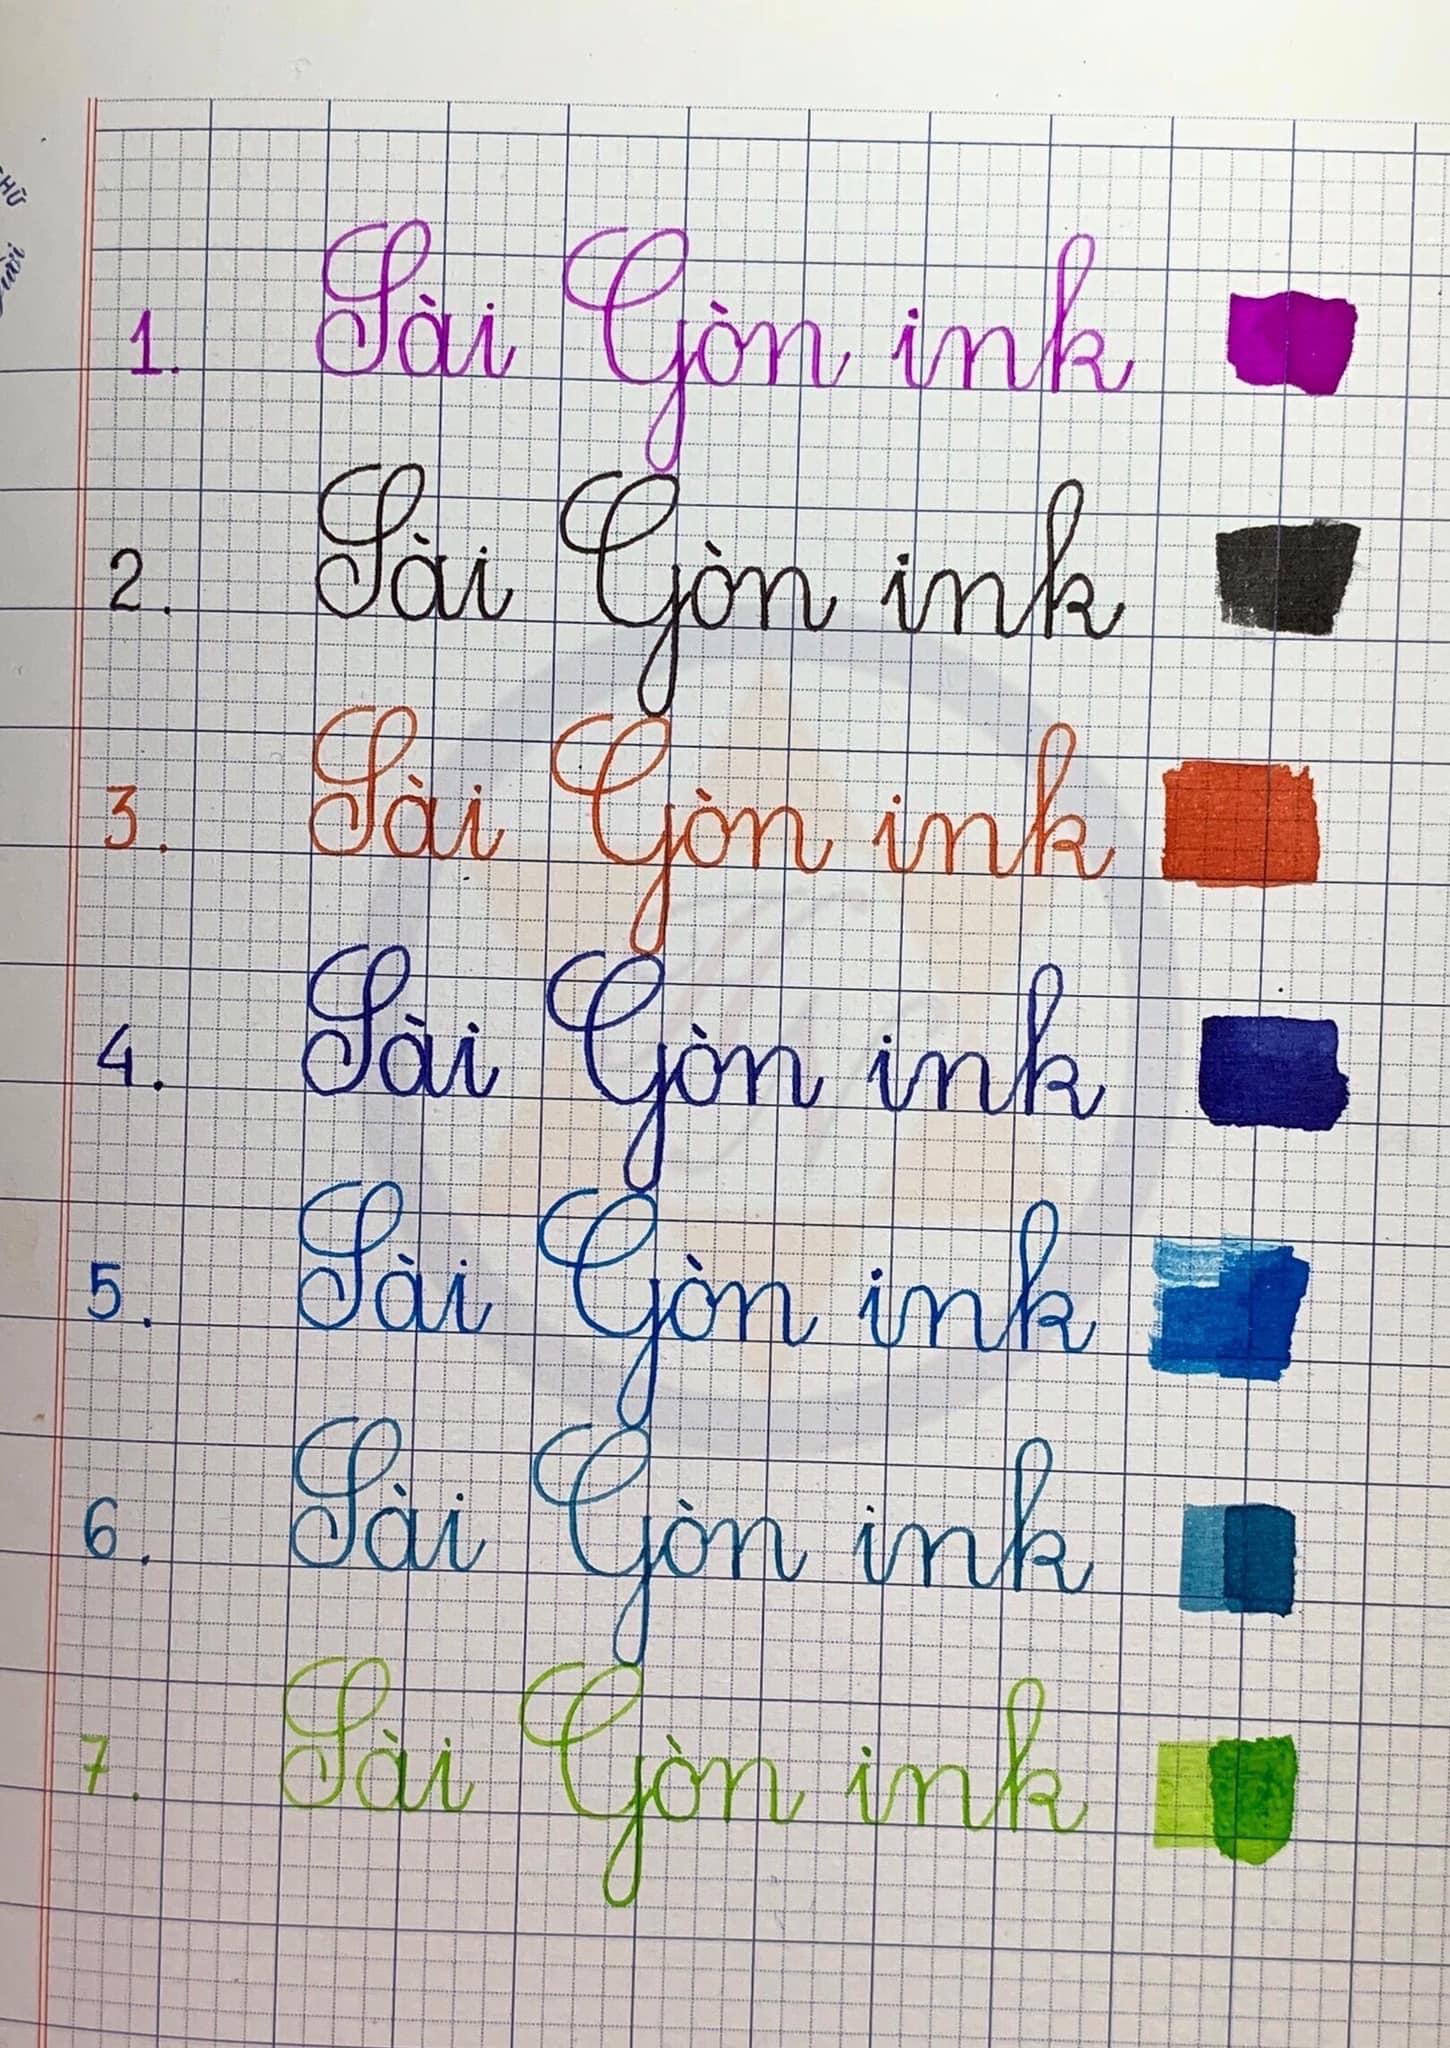 1. Sài Gòn ink
2. Sài Gòn ink
3. Sài Gòn ink
4. Sài Gòn ink
5. Sài Gòn ink
6. Sài Gòn ink
7. Sài Gòn ink